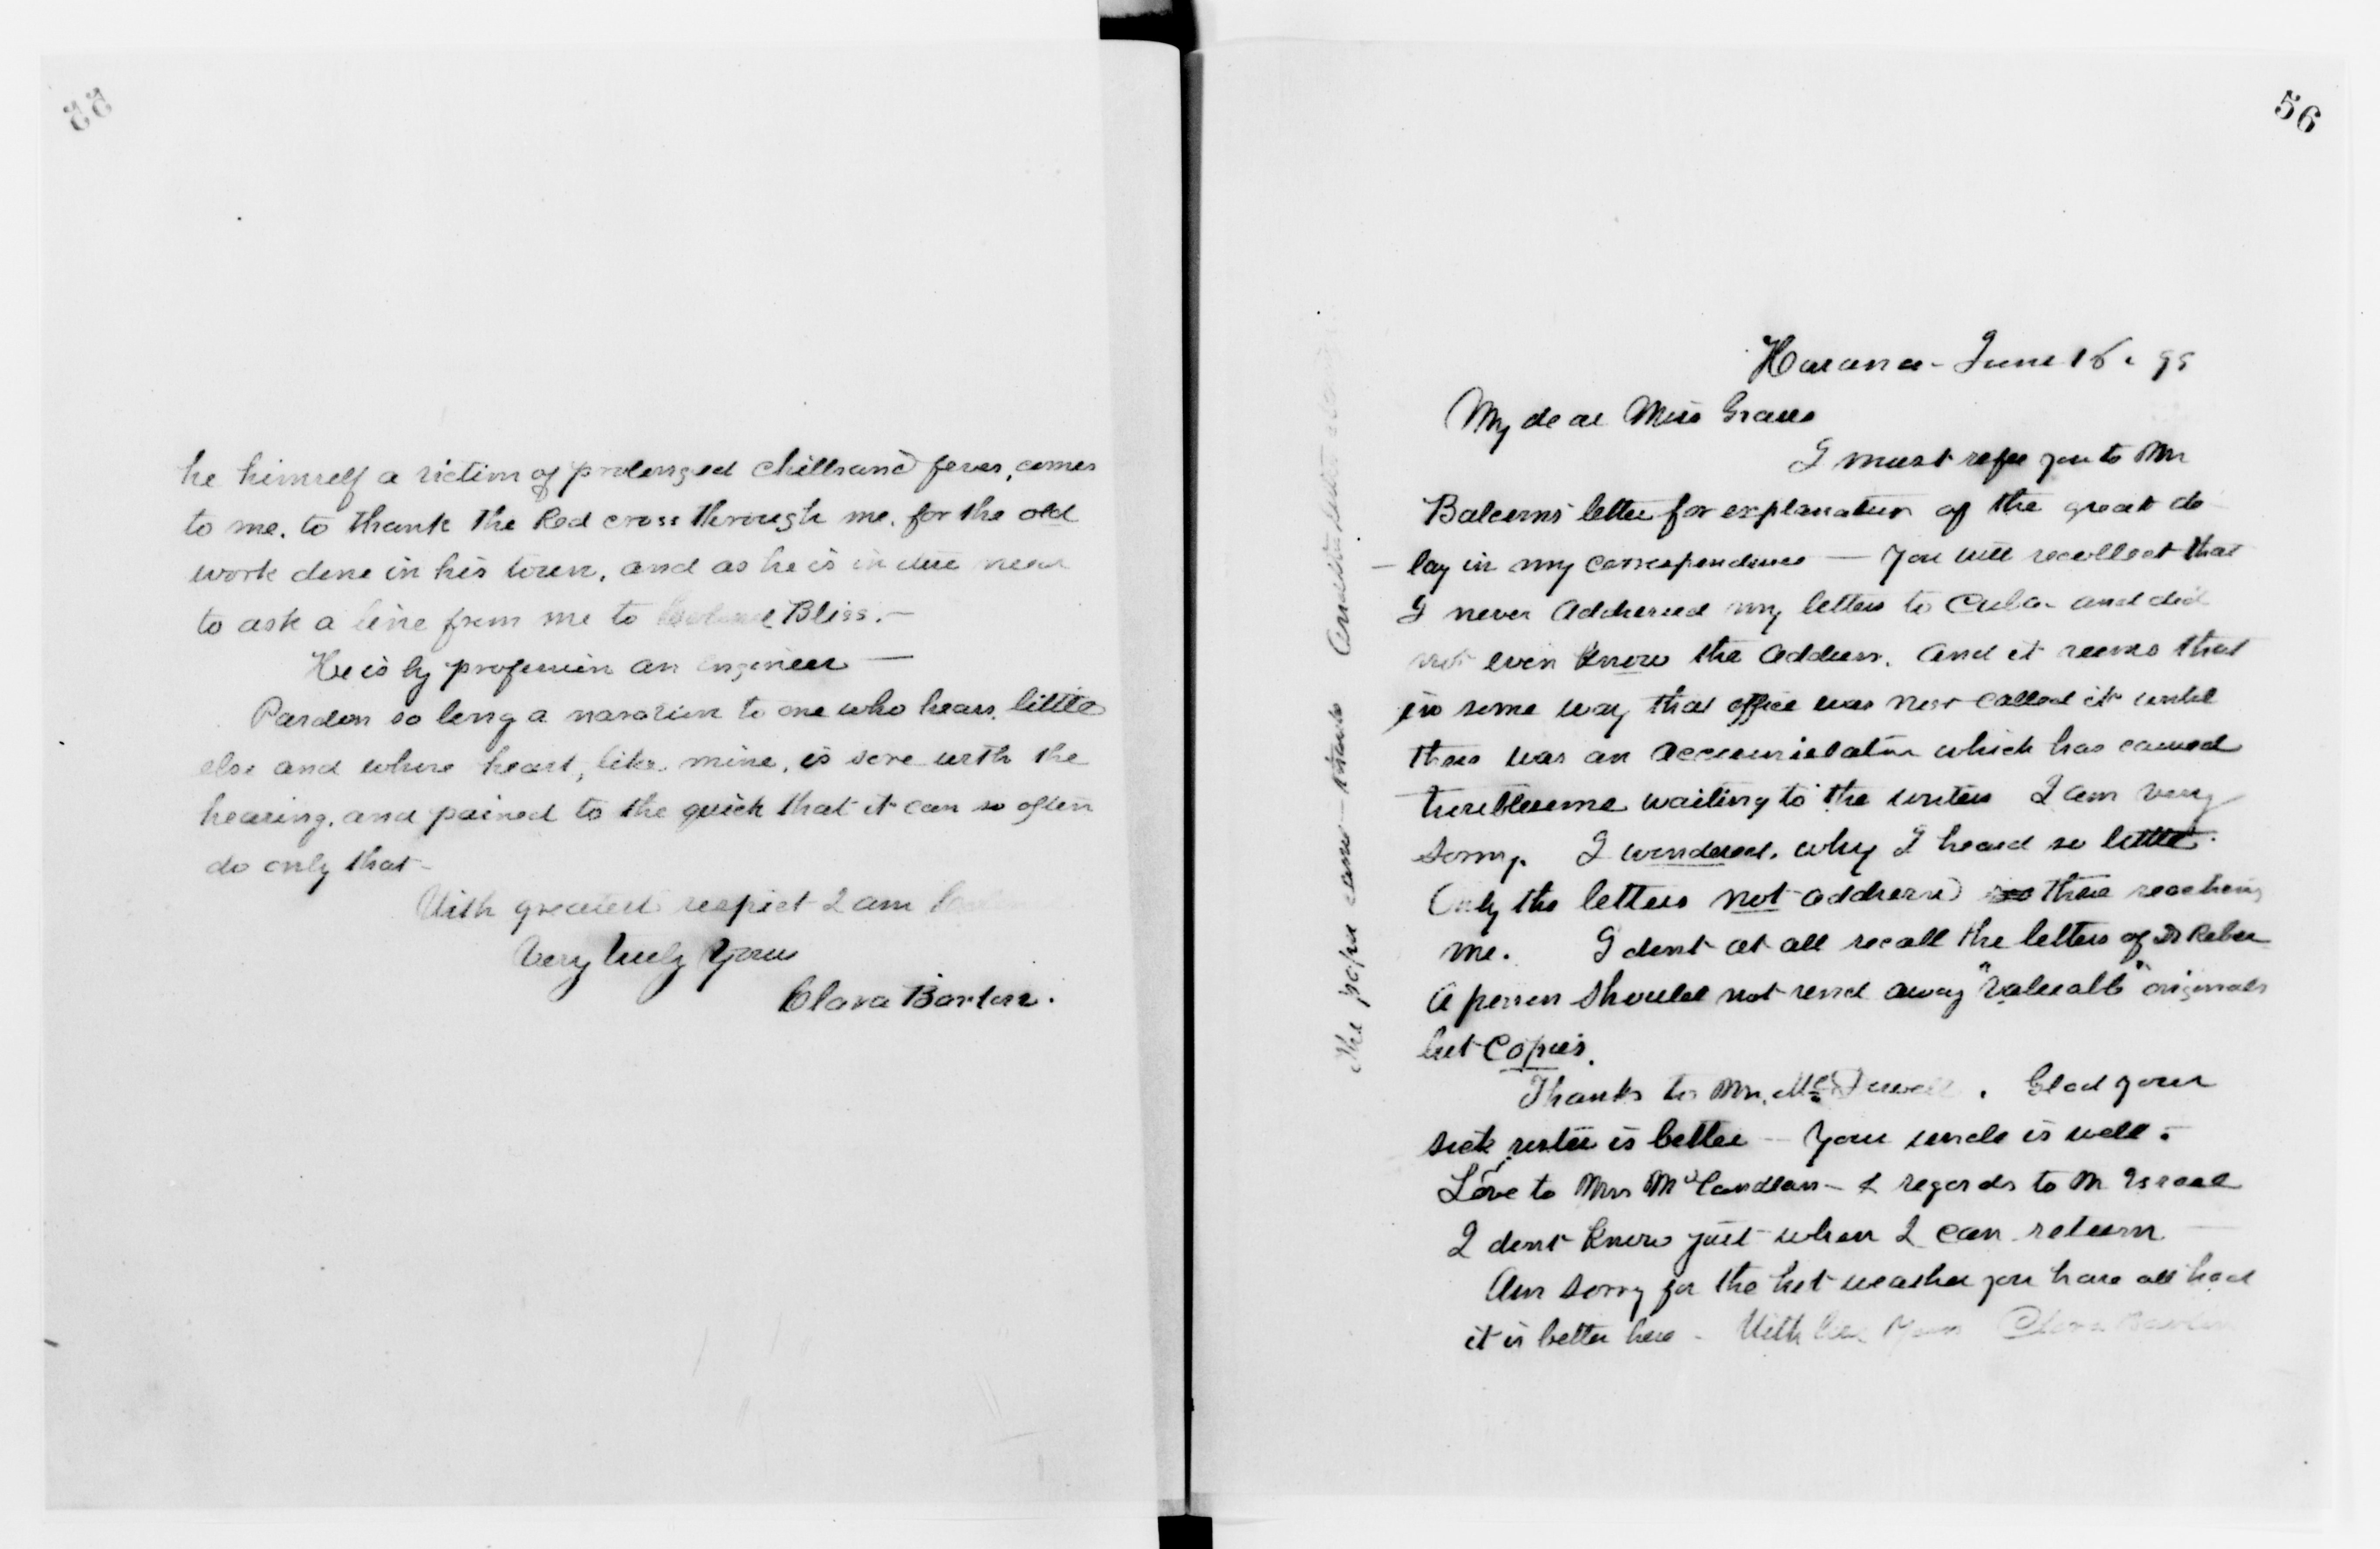 55
he himself a victim of prolonged chills and fever, comes
to me, to thank the Red cross through me, for the old
work done in his town, and as he is in dire need
to ask a line from me to Colonel Bliss.—
He is by profession an engineer —
Pardon so long a narration to one who hears little
else and whose heart, like mine, is sore with the
hearing, and pained to the quick that it can so often
do only that—
With greatest respect I am
Very truly yours
Clara Barton.
56
Havana - June 16. 99
My dear Miss Graves
I must refer you to Mr
Balcoms letter for explanation of the great de
- lay in my correspondence — You will recollect that
I never addressed my letters to Cuba and did
not even know the address. And it seems that
in some way that office was not called at until
there was an accumulation which has caused
troublesome waiting to the writers I am very
sorry. I wondered, why I heard so little.
Only the letters not addressed there reaching
me. I dont at all recall the letters of Dr Reber
A person should not send away "valuable" originals
but copies.
Thanks to Mr. Mc. Glad your
sick sister is better — Your uncle is well.
Love to Mrs McCandlass - & regards to Mr Israel
I dont know just when I can return —
Am sorry for the hot weather you have all had
it is better here - With love Yours Clara Barton
The paper came — thanks